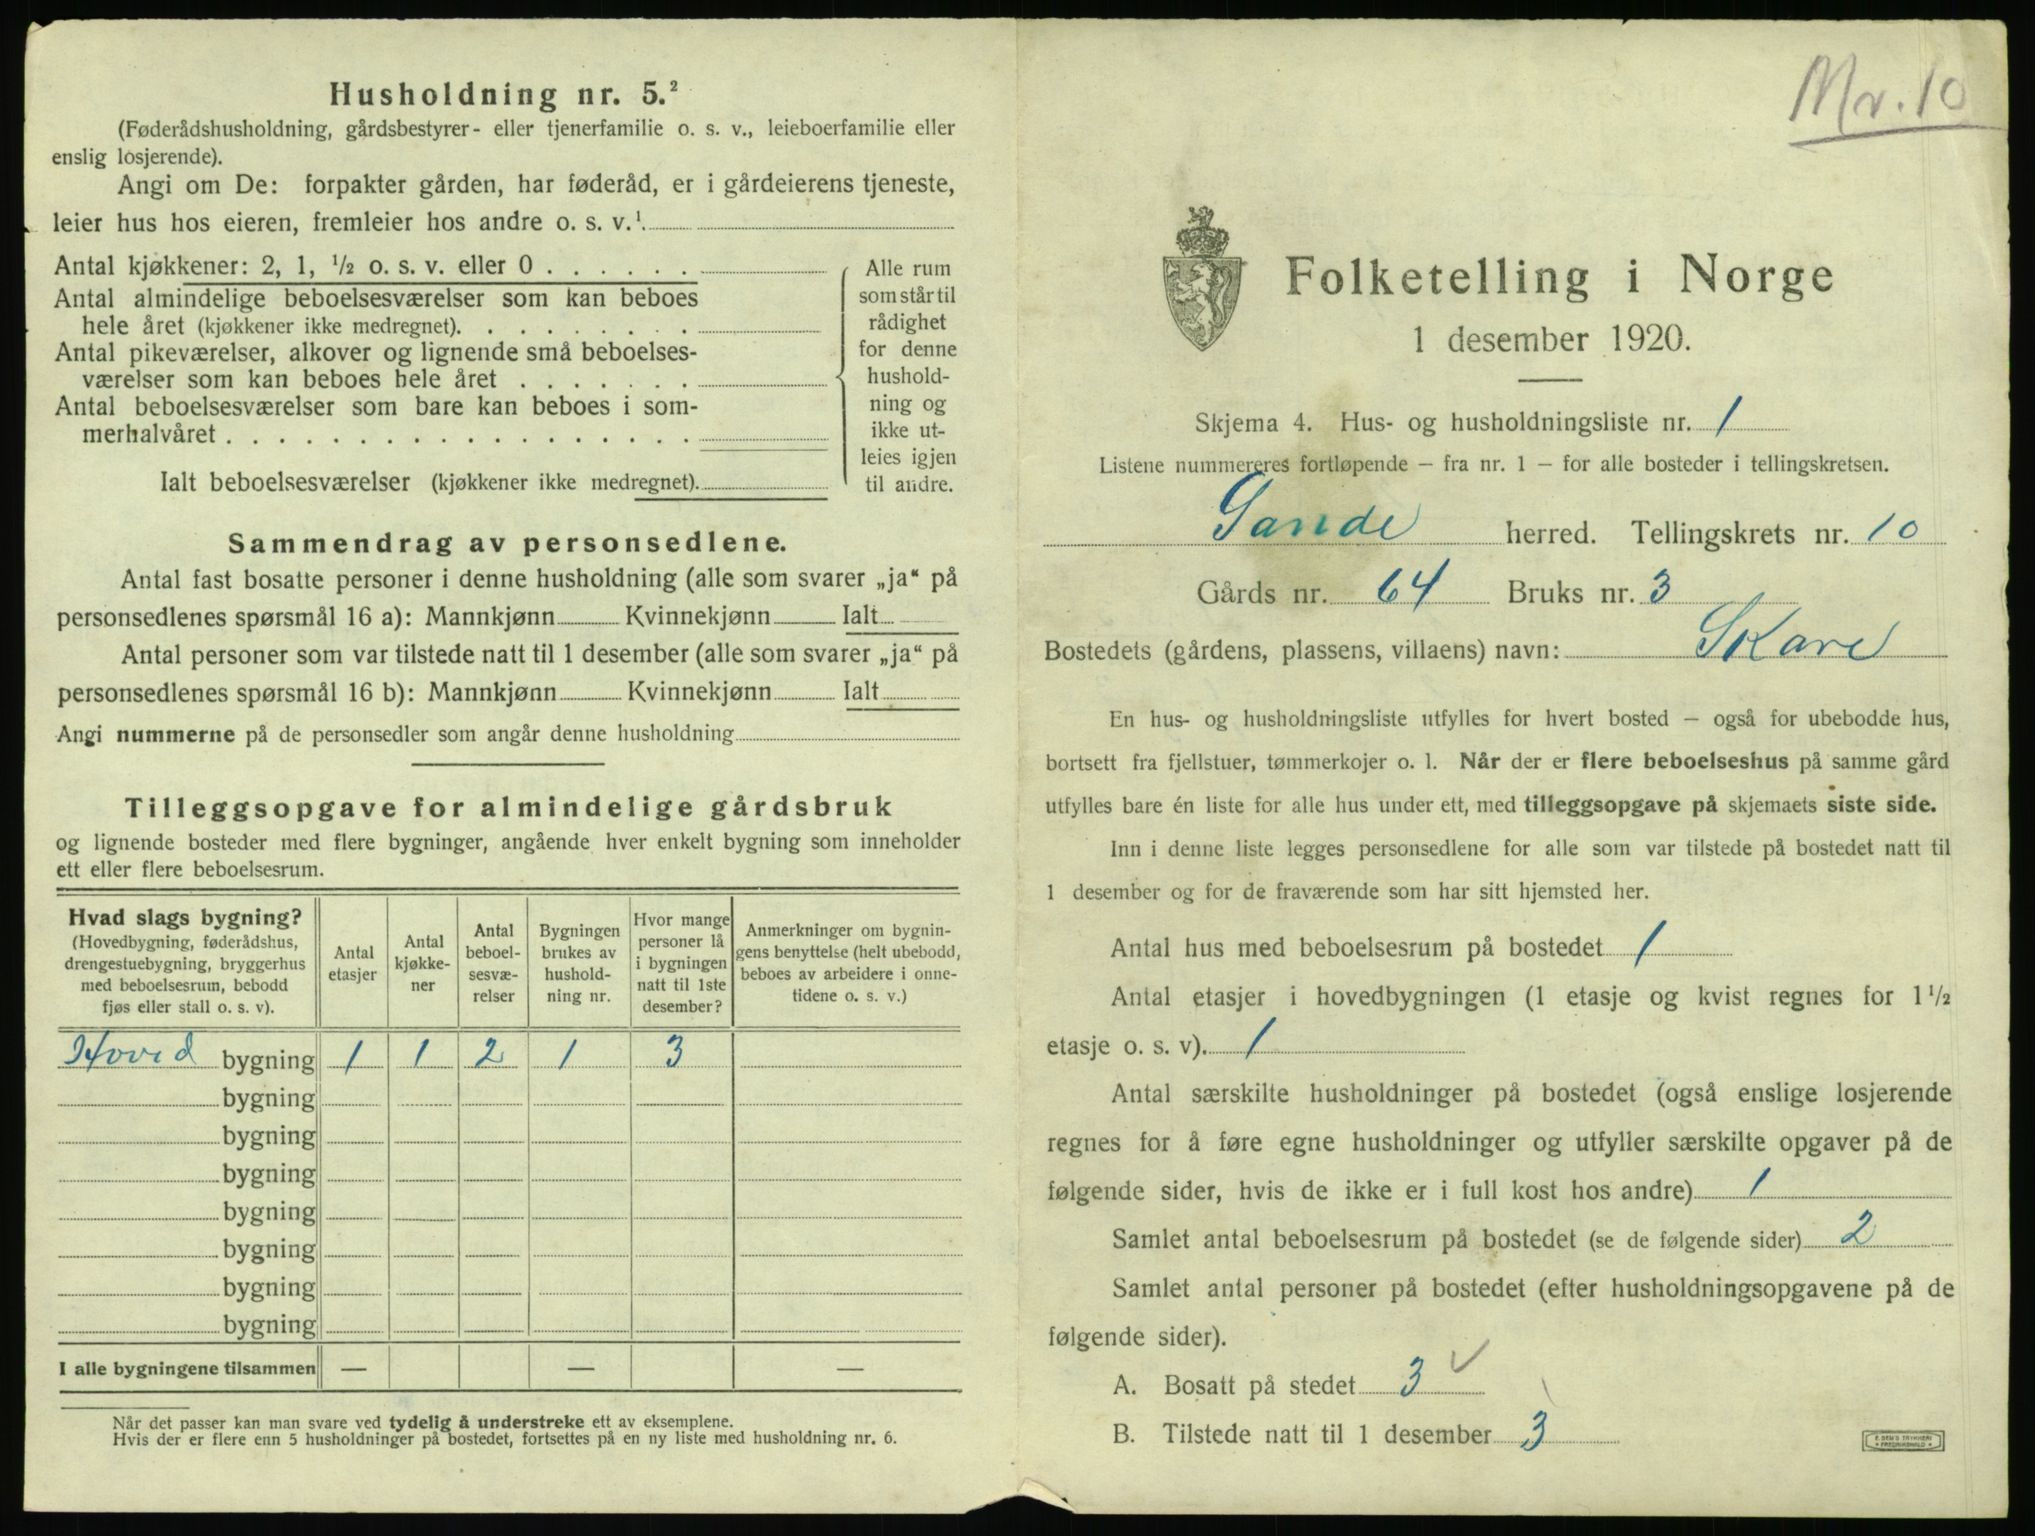 Husholdning nr. 5.²
(Føderådshusholdning, gårdsbestyrer- eller tjenerfamilie o. s. v., leieboerfamilie eller
enslig losjerende).
Angi om De: forpakter gården, har føderåd, er i gårdeierens tjeneste,
leier hus hos eieren, fremleier hos andre o. s. v.¹
Antal kjøkkener: 2, 1, ½ o. s. v. eller 0 . . . . . .
Antal almindelige beboelsesværelser som kan beboes
hele året (kjøkkener ikke medregnet). . . . . . . . .
Antal pikeværelser, alkover og lignende små beboelses-
værelser som kan beboes hele året . . . . . . .
Antal beboelsesværelser som bare kan beboes i som-
merhalvåret . . . . . . . . . . . . . . . . . .
Ialt beboelsesværelser (kjøkkener ikke medregnet).
Alle rum
som står til
rådighet
for denne
hushold-
ning og
ikke ut-
leies igjen
til andre.
Sammendrag av personsedlene.
Antal fast bosatte personer i denne husholdning (alle som svarer „ja“ på
personsedlenes spørsmål 16 a): Mannkjønn Kvinnekjønn Ialt
Antal personer som var tilstede natt til 1 desember (alle som svarer „ja“ på
personsedlenes spørsmål 16 b): Mannkjønn Kvinnekjønn Ialt
Angi nummerne på de personsedler som angår denne husholdning
Tilleggsopgave for almindelige gårdsbruk
og lignende bosteder med flere bygninger, angående hver enkelt bygning som inneholder
ett eller flere beboelsesrum.
Hvad slags bygning?
(Hovedbygning, føderådshus,
drengestuebygning, bryggerhus
med beboelsesrum, bebodd
fjøs eller stall o. s. v).
Antal
etasjer
Antal
kjøkke-
ner
Antal
beboel-
sesvæ-
relser
Bygningen
brukes av
hushold-
ning nr.
Hvor mange
personer lå
i bygningen
natt til 1ste
desember?
Anmerkninger om bygnin-
gens benyttelse (helt ubebodd,
beboes av arbeidere i onne-
tidene o. s. v.)
Hoved bygning 1 1 2 1 3
bygning
bygning
bygning
bygning
bygning
bygning
bygning
I alle bygningene tilsammen — — —
Når det passer kan man svare ved tydelig å understreke ett av eksemplene.
Hvis der er flere enn 5 husholdninger på bostedet, fortsettes på en ny liste med husholdning nr. 6.
Nr. 10
Folketelling i Norge
1 desember 1920.
Skjema 4. Hus- og husholdningsliste nr. 1
Listene nummereres fortløpende — fra nr. 1 — for alle bosteder i tellingskretsen.
Sande herred. Tellingskrets nr. 10
Gårds nr. 64 Bruks nr. 3
Bostedets (gårdens, plassens, villaens) navn: Skare
En hus- og husholdningsliste utfylles for hvert bosted — også for ubebodde hus,
bortsett fra fjellstuer, tømmerkojer o. l. Når der er flere beboelseshus på samme gård
utfylles bare én liste for alle hus under ett, med tilleggsopgave på skjemaets siste side.
Inn i denne liste legges personsedlene for alle som var tilstede på bostedet natt til
1 desember og for de fraværende som har sitt hjemsted her.
Antal hus med beboelsesrum på bostedet 1
Antal etasjer i hovedbygningen (1 etasje og kvist regnes for 1½
etasje o. s. v). 1
Antal særskilte husholdninger på bostedet (også enslige losjerende
regnes for å føre egne husholdninger og utfyller særskilte opgaver på de
følgende sider, hvis de ikke er i full kost hos andre) 1
Samlet antal beboelsesrum på bostedet (se de følgende sider) 2
Samlet antal personer på bostedet (efter husholdningsopgavene på de
følgende sider).
A. Bosatt på stedet 3 ✓
B. Tilstede natt til 1 desember 3
E. SEM'S TRYKKERI
FREDRIKSHALD